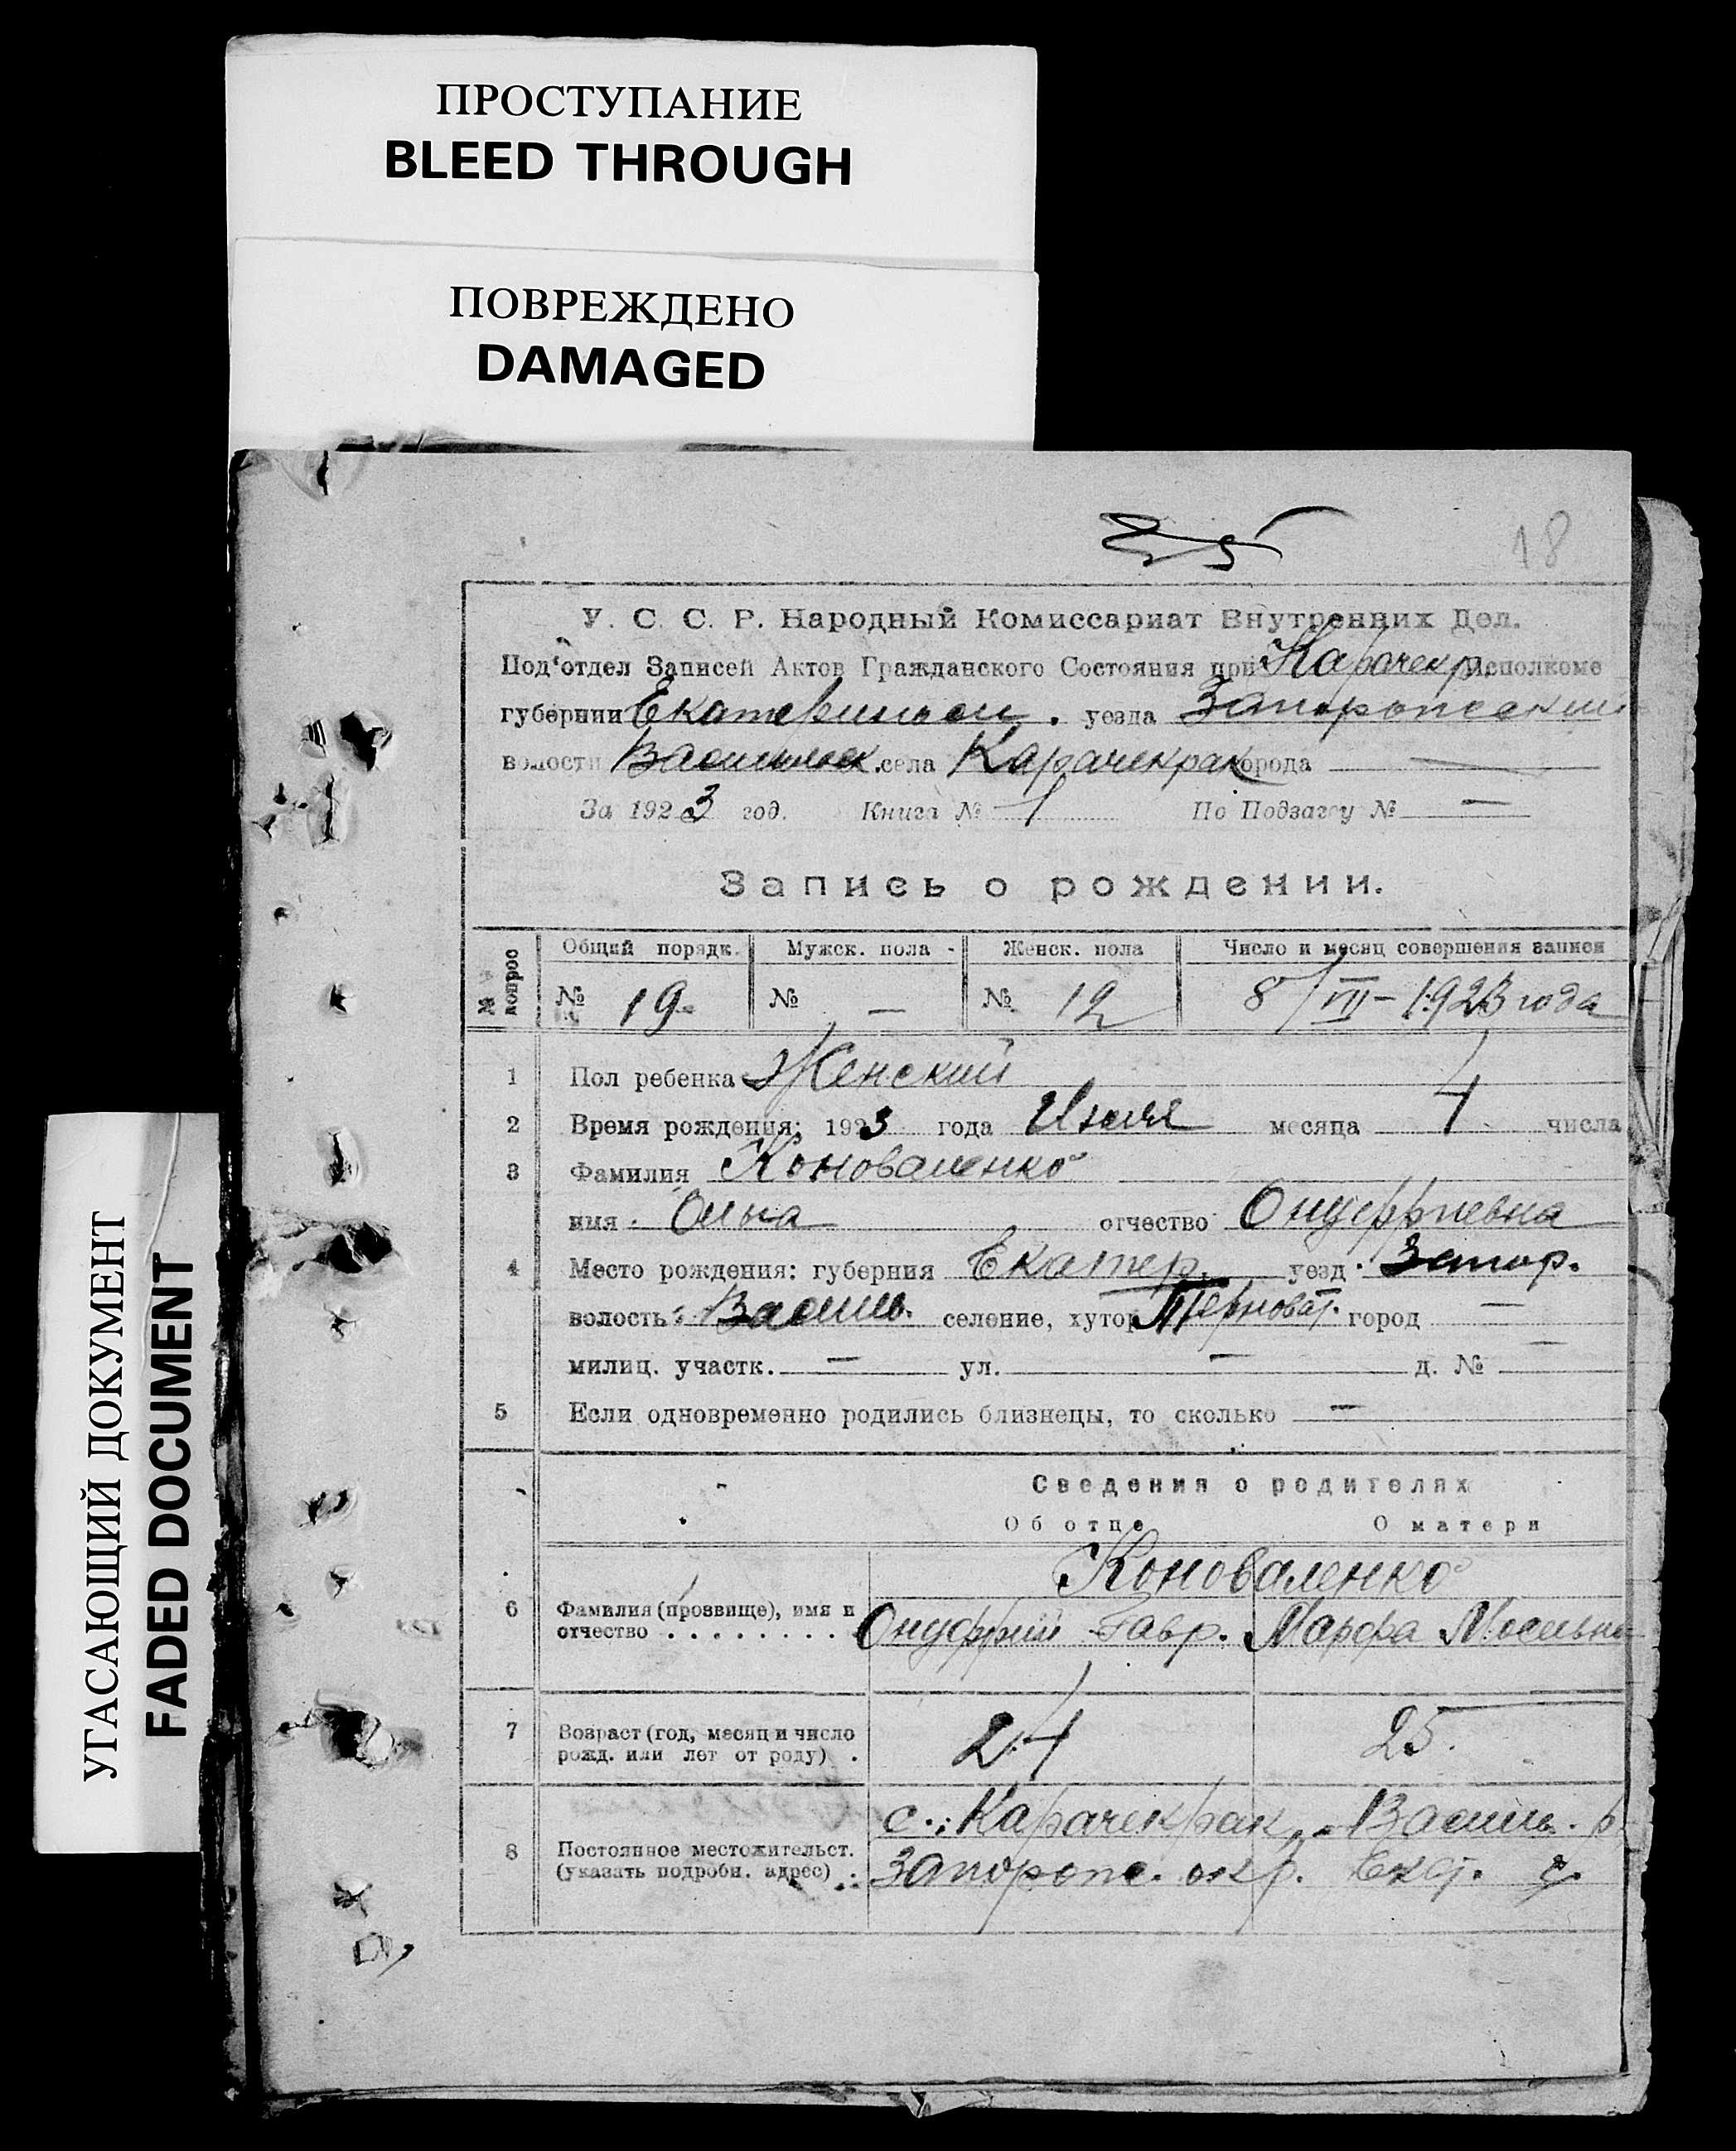 ПРОСТУПАНИЕ
BLEED THROUGH
ПОВРЕЖДЕНО
DAMAGED
УГАСАЮЩИЙ ДОКУМЕНТ
FADED DOCUMENT
25
18
У. С. С. Р. Народный Комиссариат Внутренних Дел.
Под'отдел Записей Актов Гражданского Состояния при Карачекр. исполкоме
губернии Екатеринослав. уезда Запорожский
волости Васильев. села Карачекрак города —
За 1923 год. Книга № 1 По Подзагсу № —
Запись о рождении.
№ вопрос Общий порядк. Мужск. пола Женск. пола Число и месяц совершения записи
№ 19 № — № 12 8/VII-1923 года
1 Пол ребенка Женский
2 Время рождения: 1923 года Июля месяца 4 числа
3 Фамилия Коноваленко
имя Ольга отчество Онуфриевна
4 Место рождения: губерния Екатер. уезд Запор.
волость: Василь. селение, хутор Терноват. город —
милиц. участк. — ул. — д. № —
5 Если одновременно родились близнецы, то сколько —
Сведения о родителях
Об отце О матери
Коноваленко
6 Фамилия (прозвище), имя и
отчество . . . . . . . . Онуфрий Гавр. Марфа
7 Возраст (год, месяц и число
рожд. или лет от роду) . 24 25.
8 Постоянное местожительст.
(указать подробн. адрес) . с. Карачекрак, Василь. р.
Запорож. окр. Екат. г.